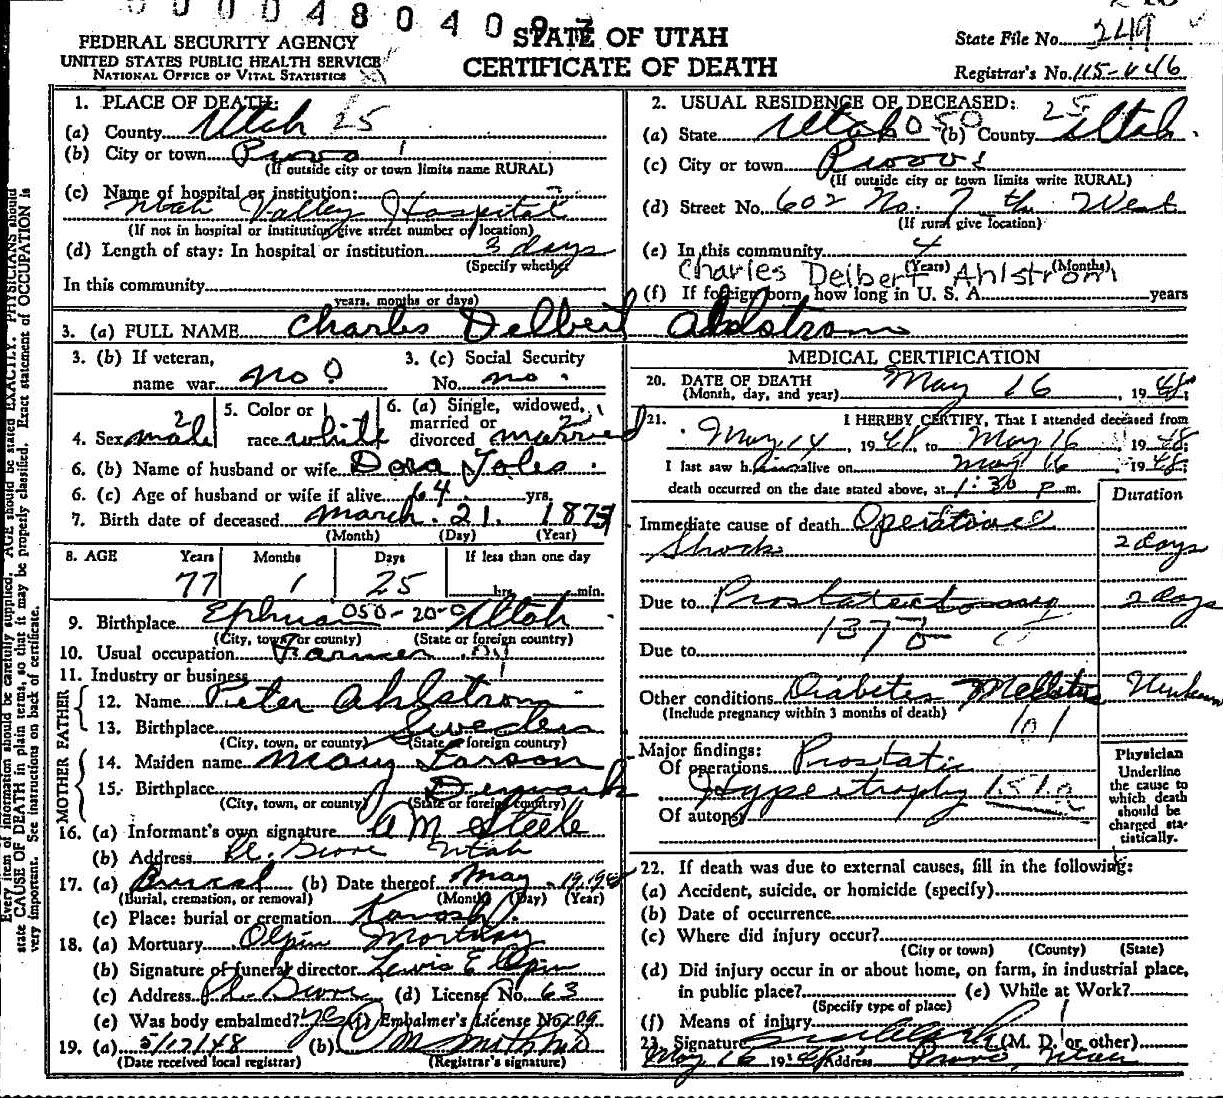 0 0 0 0 4 8 0 4 0 9 7
STATE OF UTAH
CERTIFICATE OF DEATH
FEDERAL SECURITY AGENCY
UNITED STATES PUBLIC HEALTH SERVICE
NATIONAL OFFICE OF VITAL STATISTICS
State File No. 249
Registrar's No. 115-
Every item of information should be carefully supplied. AGE should be stated EXACTLY. PHYSICIANS should
state CAUSE OF DEATH in plain terms, so that it may be properly classified. Exact statement of OCCUPATION is
very important. See instructions on back of certificate.
1. PLACE OF DEATH:
(a) County Utah 25
(b) City or town Provo 1
(If outside city or town limits name RURAL)
(c) Name of hospital or institution:
Utah Valley Hospital
(If not in hospital or institution give street number or location)
(d) Length of stay: In hospital or institution 3 days
(Specify whether
In this community
years, months or days)
2. USUAL RESIDENCE OF DECEASED:
(a) State Utah 050 (b) County 25 Utah.
(c) City or town Provo
(If outside city or town limits write RURAL)
(d) Street No. 602 No. 7th West
(If rural give location)
(e) In this community 4
(Years) (Months)
Charles Delbert Ahlstrom
(f) If foreign born, how long in U. S. A. years
3. (a) FULL NAME Charles Delbert Ahlstrom
3. (b) If veteran, name war no 0
3. (c) Social Security No. no.
4. Sex male 2
5. Color or race white 1
6. (a) Single, widowed, married or divorced married 2
6. (b) Name of husband or wife Dora Yoles.
6. (c) Age of husband or wife if alive 64 yrs.
7. Birth date of deceased March. 21. 1871
(Month) (Day) (Year)
8. AGE Years Months Days If less than one day
77 1 25 hrs. min.
9. Birthplace Ephraim 050-20-0 Utah
(City, town, or county) (State or foreign country)
10. Usual occupation Farmer
11. Industry or business
FATHER
12. Name Peter Ahlstrom
13. Birthplace Sweden
(City, town, or county) (State or foreign country)
MOTHER
14. Maiden name Mary Larson
15. Birthplace Denmark
(City, town, or county) (State or foreign country)
16. (a) Informant's own signature A M Steele
(b) Address Pl. Grove Utah
17. (a) Burial (b) Date thereof May 19, 1948
(Burial, cremation, or removal) (Month) (Day) (Year)
(c) Place: burial or cremation Kanosh.
18. (a) Mortuary Olpin Mortuary
(b) Signature of funeral director Lewis E Olpin
(c) Address Pl. Grove (d) License No. 63
(e) Was body embalmed? yes (f) Embalmer's License No. 109
19. (a) 5/17/48 (b)
(Date received local registrar) (Registrar's signature)
MEDICAL CERTIFICATION
20. DATE OF DEATH
(Month, day, and year) May 16, 1948
21. I HEREBY CERTIFY, That I attended deceased from
May 14, 1948, to May 16 1948
I last saw him alive on May 16, 1948;
death occurred on the date stated above, at 1:30 p.m.
Duration
Immediate cause of death Operational
Shock 2 days
Due to Prostatectomy 2 days
137
Due to
Other conditions Diabetes Mellitus Unknown
(Include pregnancy within 3 months of death)
101
Major findings:
Of operations Prostatic
Hypertrophy
Of autopsy
Physician
Underline
the cause to
which death
should be
charged sta-
tistically.
22. If death was due to external causes, fill in the following:
(a) Accident, suicide, or homicide (specify)
(b) Date of occurrence
(c) Where did injury occur?
(City or town) (County) (State)
(d) Did injury occur in or about home, on farm, in industrial place,
in public place? (e) While at Work?
(Specify type of place)
(f) Means of injury
23. Signature (M. D. or other)
May 16 1948 Address Provo, Utah